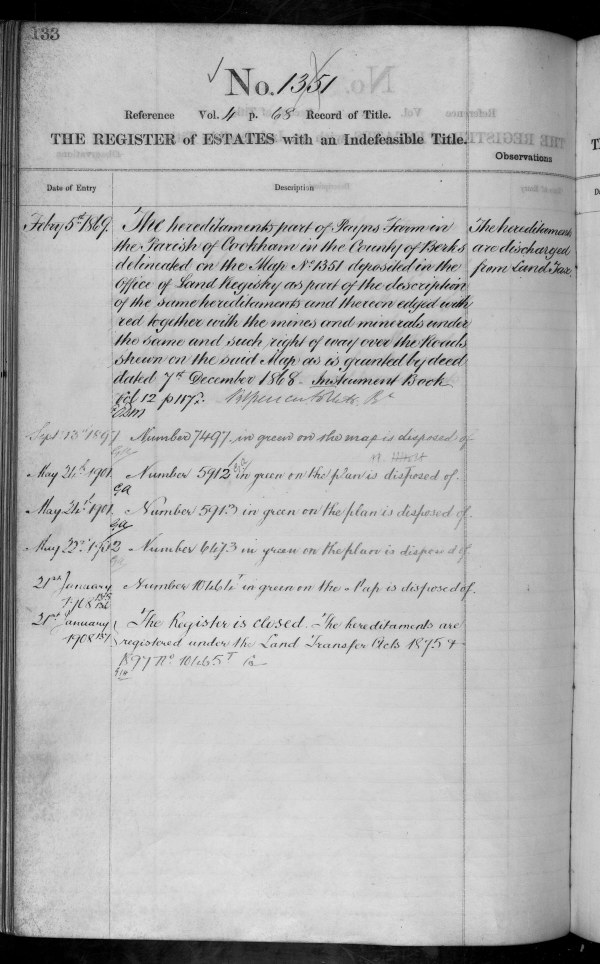 133
No. 1351
Reference Vol. 4 p. 68 Record of Title.
THE REGISTER of ESTATES with an Indefeasible Title.
Observations
Date of Entry
Description
Febry 5th 1869.
The hereditaments part of Payns Farm in
the Parish of Cookham in the County of Berks
delineated on the Map No 1351 deposited in the
Office of Land Registry as part of the description
of the same hereditaments and thereon edged with
red together with the mines and minerals under
the same and such right of way over the Roads
shewn on the said Map as is granted by deed
dated 7th December 1868. Instrument Book
Vol 12 p 117.
The hereditaments
are discharged
from Land Tax.
Sept 13th 1897
Number 7497 in green on the map is disposed of
May 24th 1901
Number 5912 in green on the plan is disposed of.
May 24th 1901
Number 5913 in green on the plan is disposed of
May 22nd 1902
Number 6473 in green on the plan is disposed of
21st January
1908
Number 10464T in green on the Map is disposed of.
21st January
1908
The Register is closed. The hereditaments are
registered under the Land Transfer Acts 1875 &
1897 No. 10465T